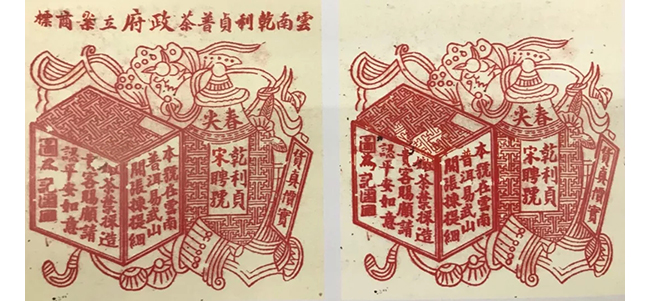 雲南乾利貞普茶政府立案商標
春尖
乾利貞
宋聘號
貨真價實
本號在雲南
普洱易武山
開張揀提細
嫩茶葉採造
貴客賜顧請
認平安如意
圖為記
春尖
乾利貞
宋聘號
貨真價實
本號在雲南
普洱易武山
開張揀提細
嫩茶葉採造
貴客賜顧請
認平安如意
圖為記